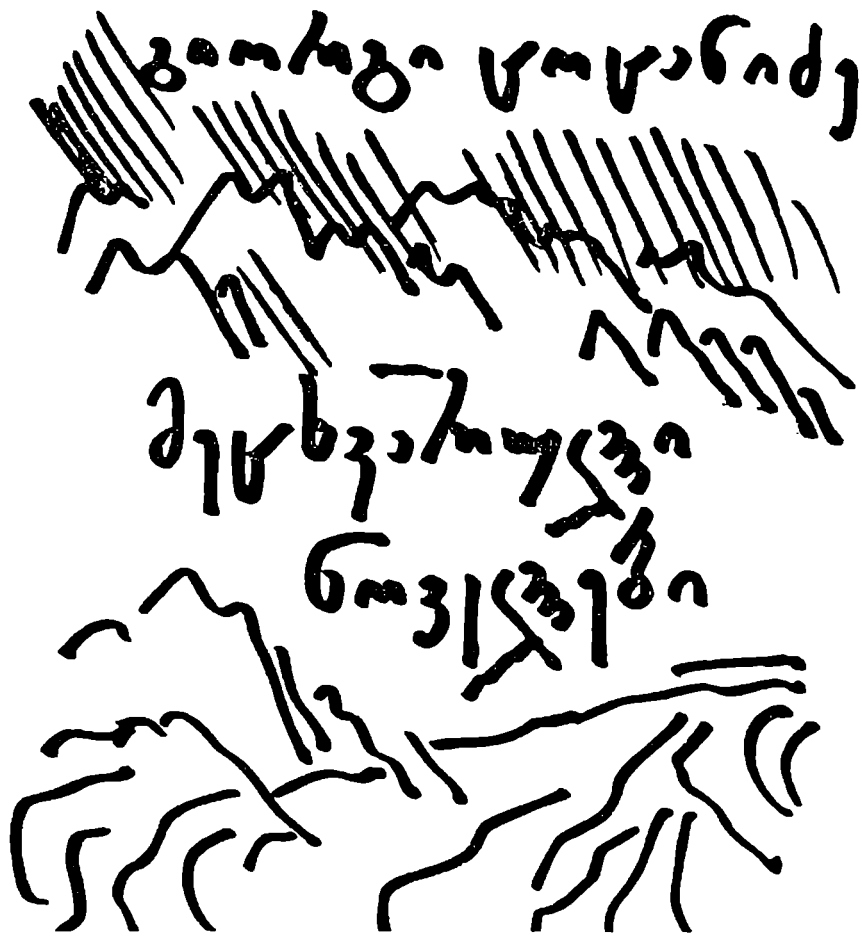 გიორგი ცოცანიძე
მეცხვარული
ნოველები